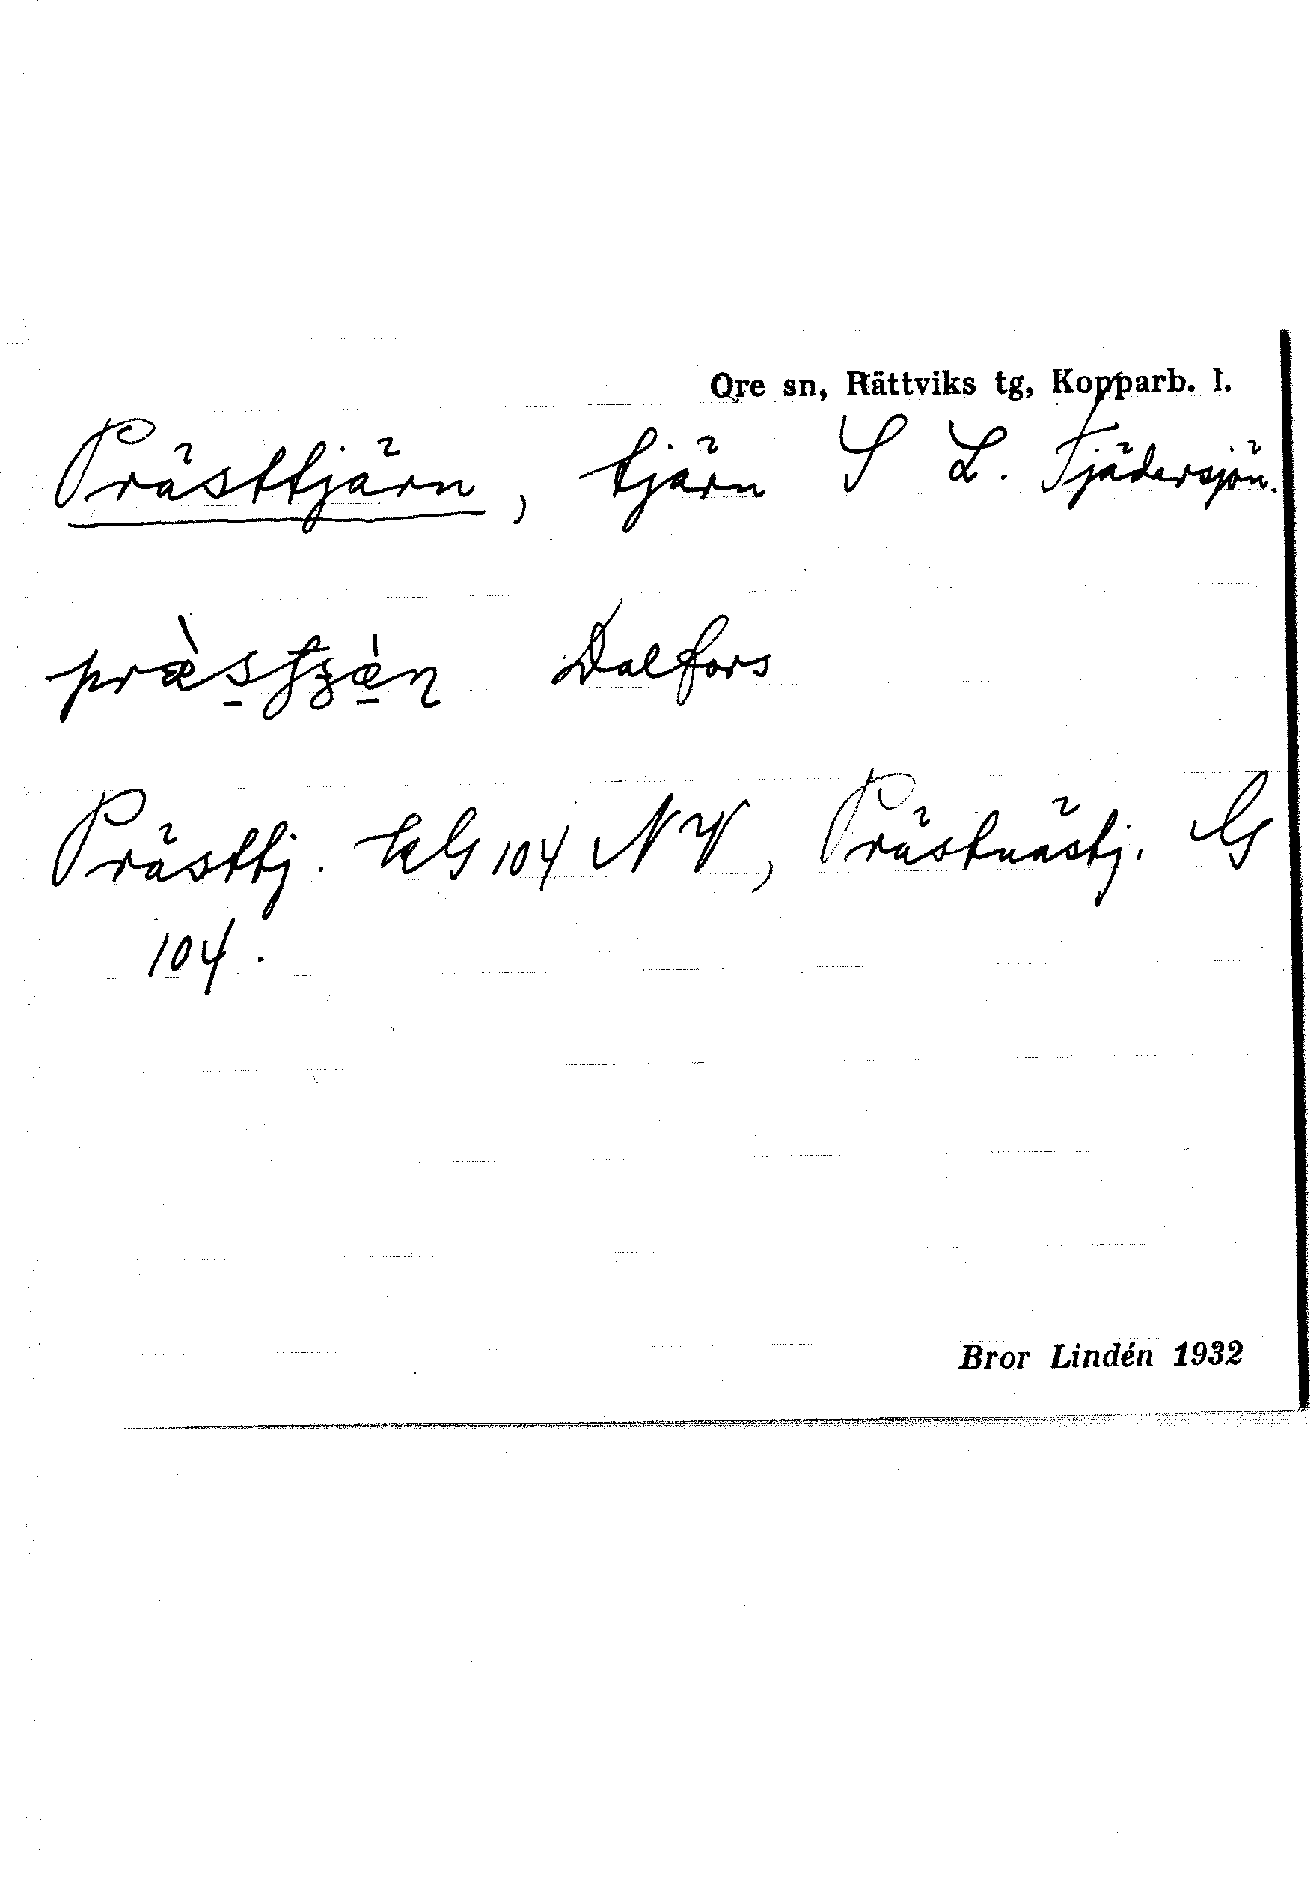 Ore sn, Rättviks tg, Kopparb. l.
Prästtjärn, tjärn S L. Fjädersjön.
Dalfors
Prästtj. kG 104 NV, Prästnästj. G
104.
Bror Lindén 1932